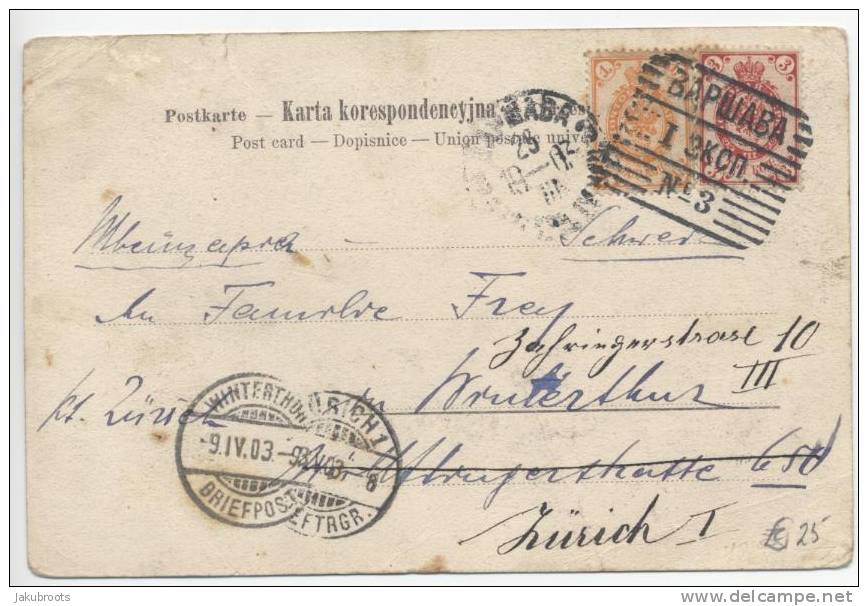 Postkarte — Karta korespondencyjna
Post card — Dopisnice — Union postale
1
3 3
ВАРШАВА
I ЭКСП.
№ 3
Швейцария — Schweiz
An Familie Frey
Zähringerstrasse 10
III
in Winterthur
Kt. Zürich
650
Zürich I
WINTERTHUR
-9.IV.03.
BRIEFPOST
ZÜRICH 1
BRIEFTRGR.
25
jakubroots
delcampe.net